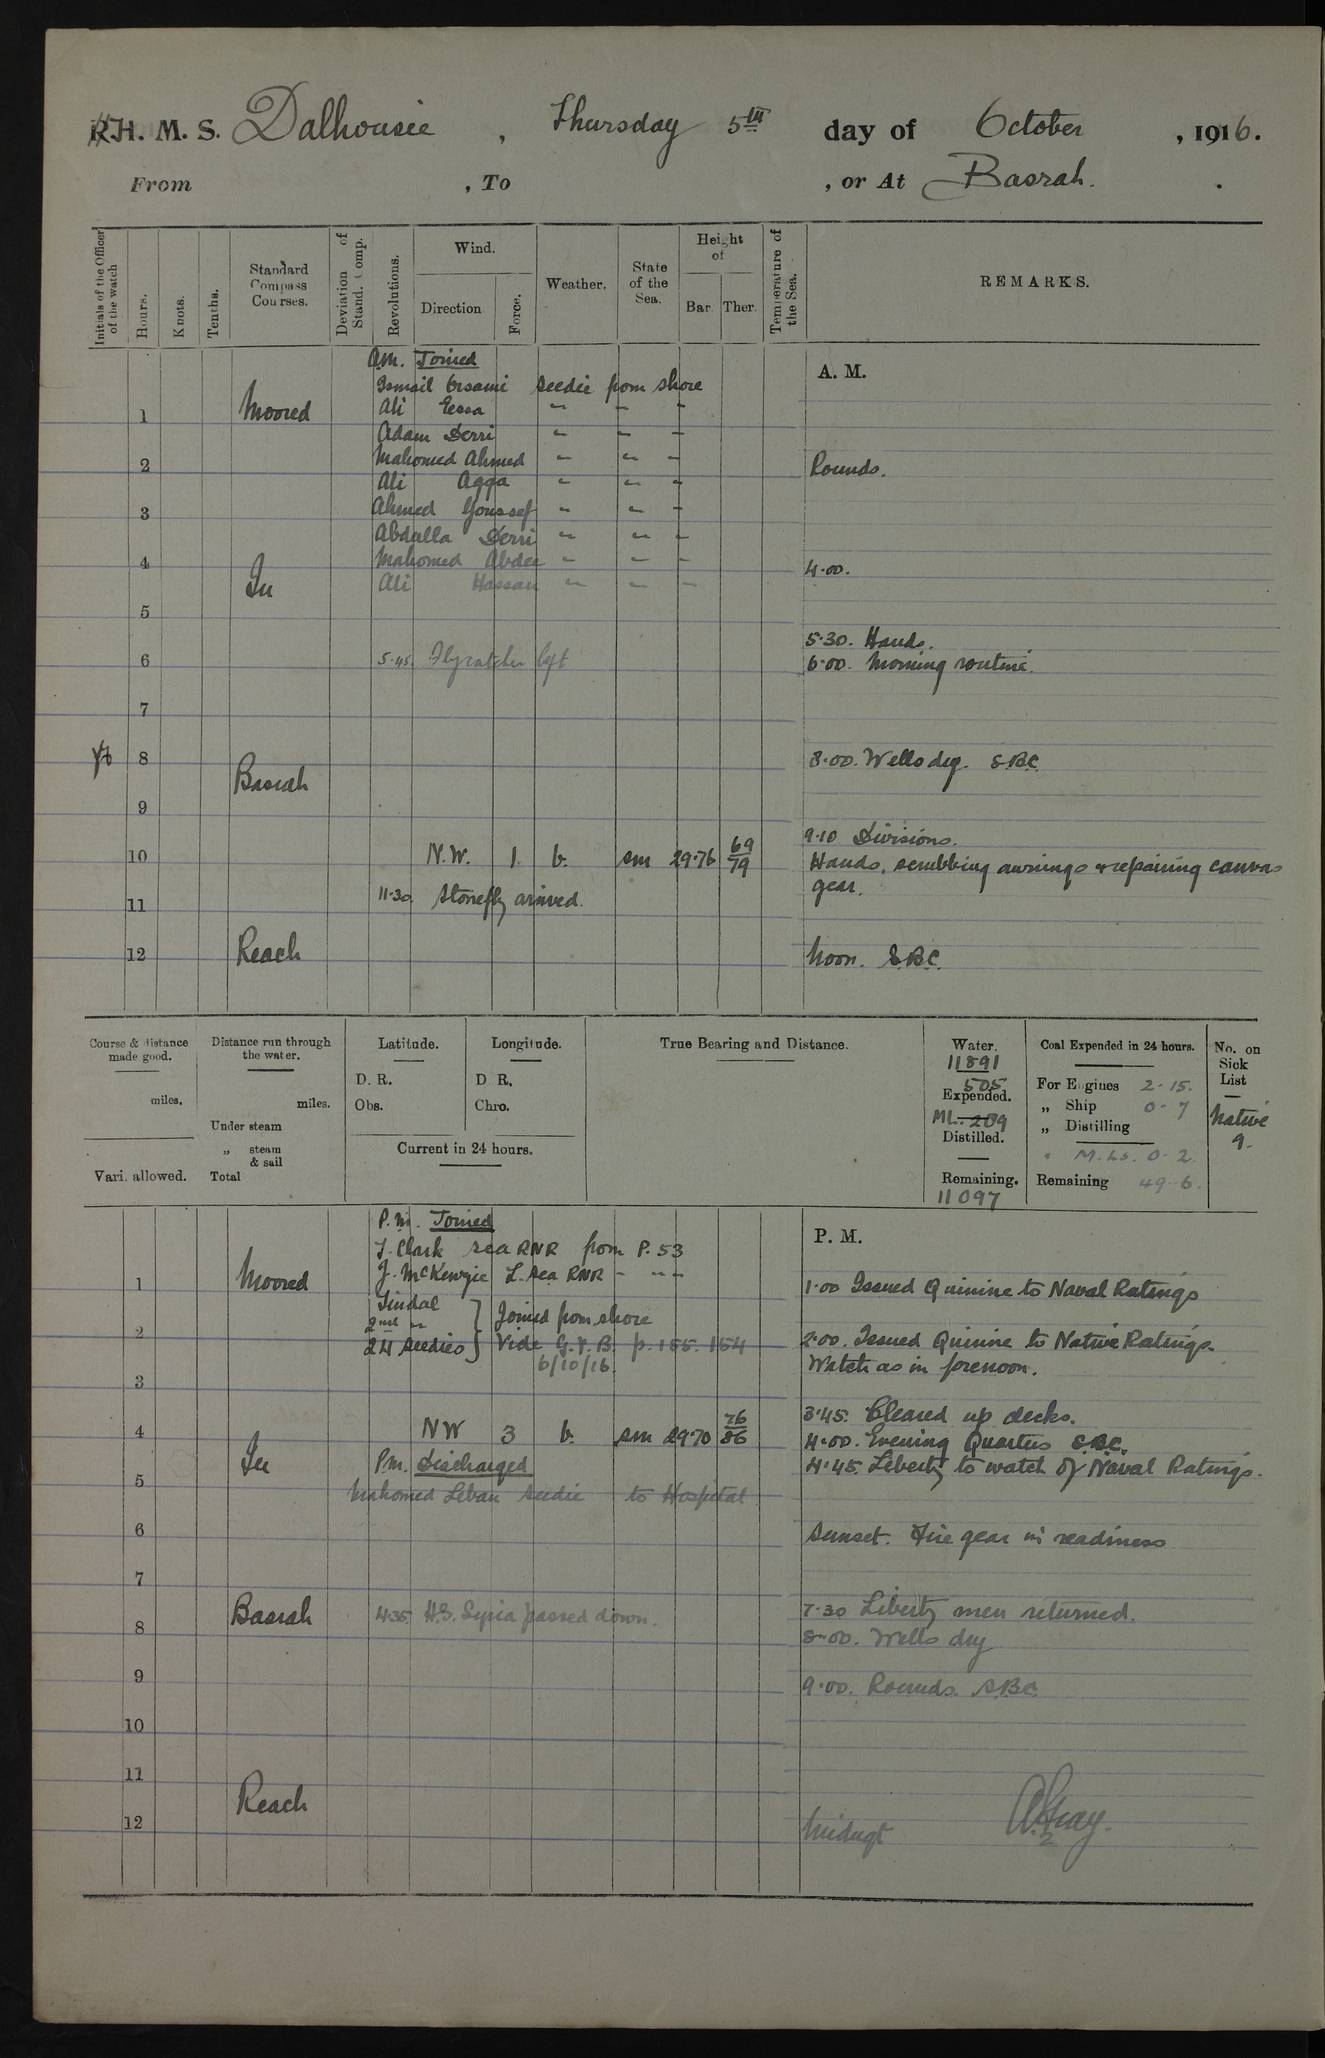 H. M. S. Dalhousie, Thursday 5th day of October, 1916.
From , To , or At Basrah.
Initials of the Officer of the watch
Hours.
Knots.
Tenths.
Standard Compass Courses.
Deviation of Stand. Comp.
Revolutions.
Wind.
Direction
Force.
Weather.
State of the Sea.
Height of
Bar. Ther.
Temperature of the Sea.
REMARKS.
A.M. Joined
A. M.
Ismail Seedie from shore
1 Moored Ali Eessa " " "
Adam Derri " " "
2 Mahomed Ahmed " " " Rounds.
Ali Agga " " "
3 Ahmed Youssef " " "
Abdulla Derri " " "
4 Mahomed Abdee " " " 4.00.
In Ali Hassan " " "
5
5.30. Hands.
6 5.45. Flycatcher left 6.00. Morning routine.
7
8 8.00. Wells dry. S.B.C.
Basrah
9
9.10 Divisions.
10 N.W. 1. b. sm 29.76 69/79 Hands. scrubbing awnings & repairing canvas
gear.
11 11.30. Stonefly arrived.
12 Reach Noon. S.B.C.
Course & distance made good.
miles.
Vari. allowed.
Distance run through the water.
miles.
Under steam
„ steam & sail
Total
Latitude.
D. R.
Obs.
Longitude.
D R.
Chro.
Current in 24 hours.
True Bearing and Distance.
Water.
11891
505
Expended.
ML. 289
Distilled.
Remaining.
11097
Coal Expended in 24 hours.
For Engines 2-15.
„ Ship 0-7
„ Distilling
" M.Ls. 0-2.
Remaining 49-6.
No. on Sick List
Native
9.
P.M. Joined
P. M.
J. Clark sea RNR from P.53
1 Moored J. McKenzie L. sea RNR - " " 1.00 Issued Quinine to Naval Ratings
Tindal
2nd "
} Joined from shore
2 24 Seedies Vide G.V.B. p. 155. 154 2.00. Issued Quinine to Native Ratings.
6/10/16. Watch as in forenoon.
3
3.45. Cleared up decks.
4 NW 3 b. sm 29.70 76/86 4.00. Evening Quarters S.B.C.
In P.M. Discharged 4.45. Liberty to watch of Naval Ratings.
5 Mahomed Leban Seedie to Hospital
6 Sunset. Fire gear in readiness
7
Basrah 4.35 H.S. Syria passed down. 7.30 Liberty men returned.
8 8.00. Wells dry
9 9.00. Rounds. S.B.C.
10
11
Reach
12 Midngt A. Gray.
2